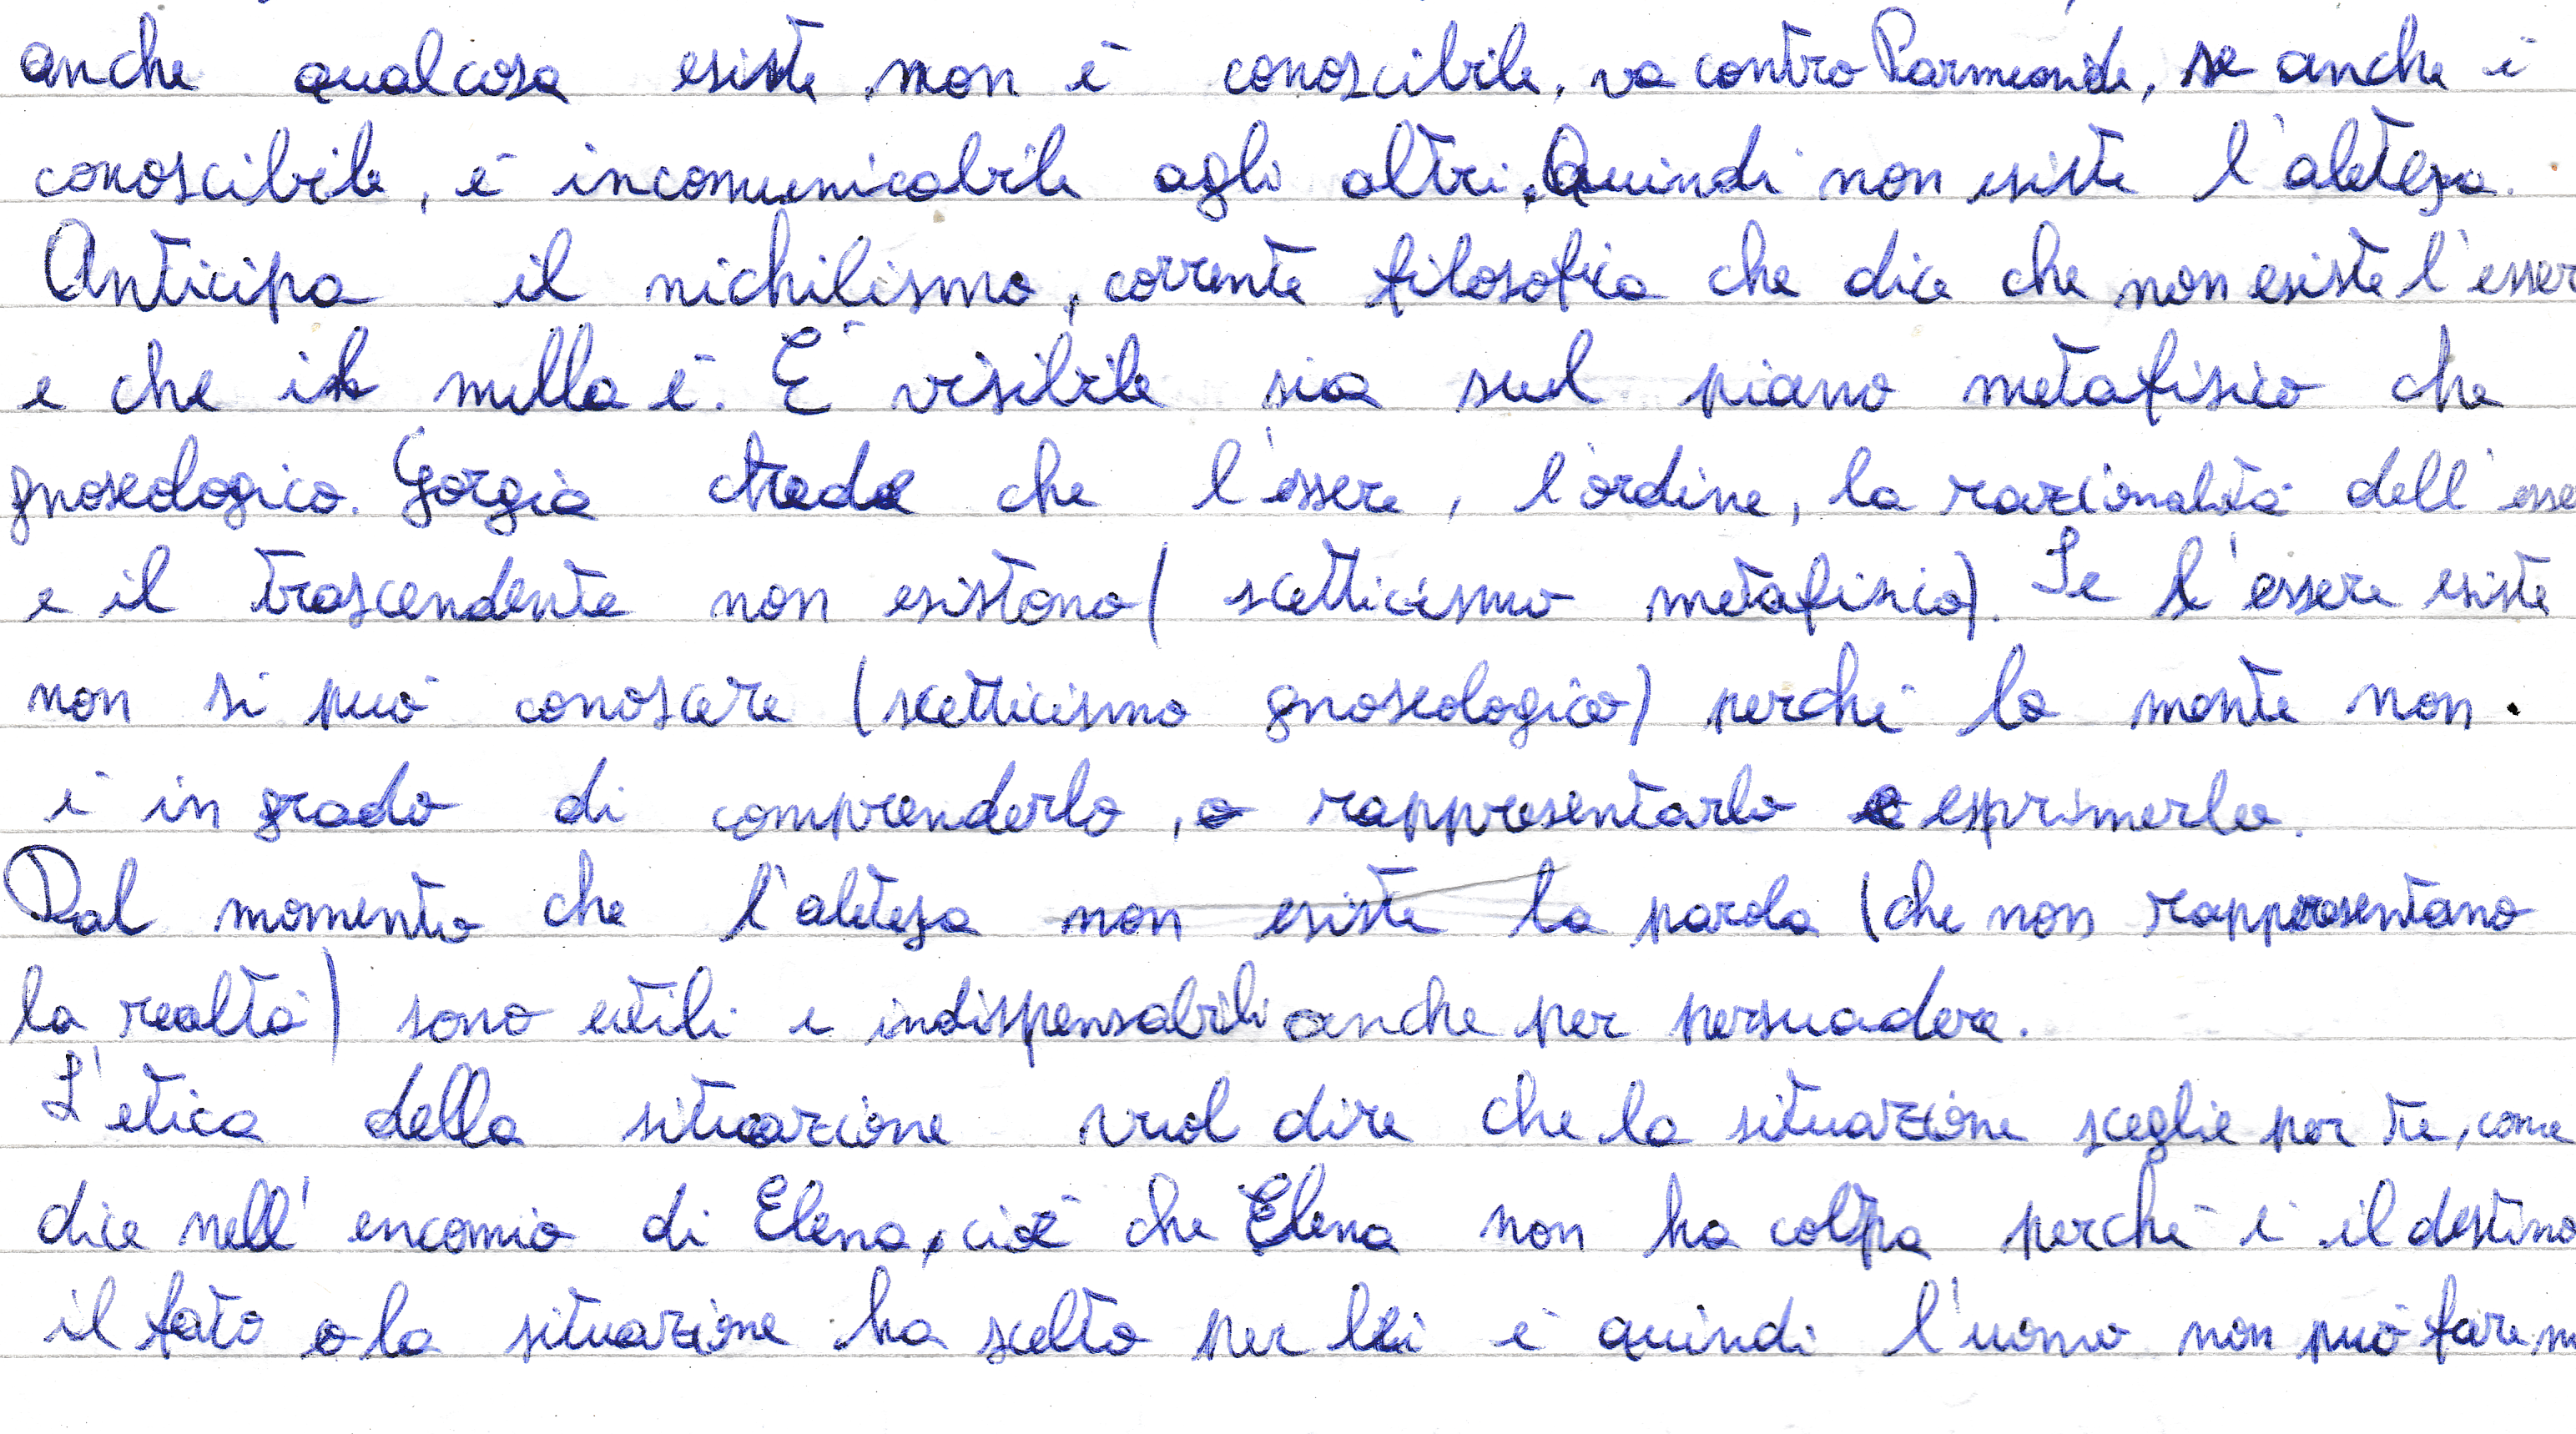 anche qualcosa esiste, non è conoscibile, va contro Parmenide, se anche è
conoscibile, è incomunicabile agli altri. Quindi non esiste l'aletega.
Anticipa il nichilismo, corrente filosofica che dice che non esiste l'esser
e che il nulla è. È visibile sia sul piano metafisico che
gnoseologico. Gorgia crede che l'essere, l'ordine, la razionalità dell'esse
e il trascendente non esistono (scetticismo metafisico). Se l'essere esiste
non si può conoscere (scetticismo gnoseologico) perché la mente non
è in grado di comprenderlo, o rappresentarlo e esprimerlo.
Dal momento che l'aletega non esiste la parola (che non rappresentano
la realtà) sono utili e indispensabili anche per persuadere.
L'etica della situazione vuol dire che la situazione sceglie per te, come
dice nell'encomio di Elena, cioè che Elena non ha colpa perché è il destino
il fato o la situazione ha scelto per lei e quindi l'uomo non può fare